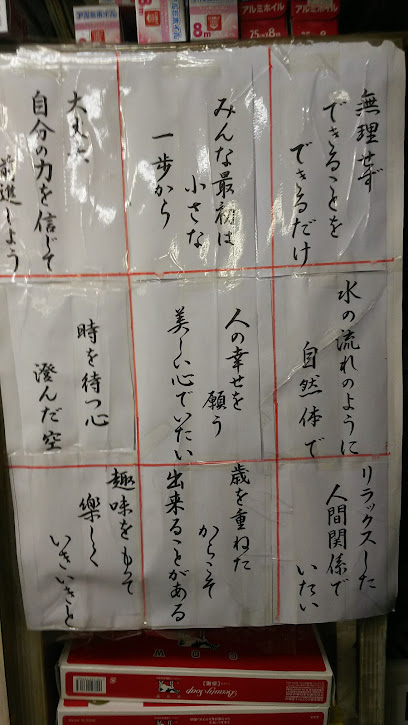 アルミホイル
8m
8m
アルミホイル
25cm×8m
アルミホイル
無理せず
できることを
できるだけ
みんな最初は
小さな
一歩から
大丈夫
自分の力を信じて
前進しよう
水の流れのように
自然体で
人の幸せを
願う
美しい心でいたい
時を待つ心
澄んだ空
リラックスした
人間関係で
いたい
歳を重ねた
からこそ
出来ることがある
趣味をもって
楽しく
いきいきと
COW
Beauty Soap